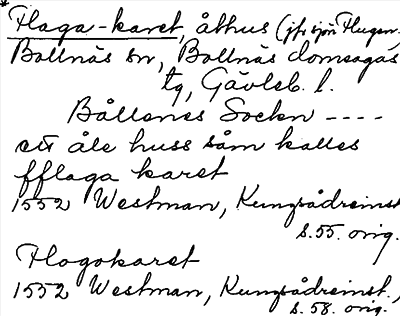 * Flaga-karet, ålhus (jfr sjön Flugen.
Bollnäs sn, Bollnäs domsagas
tg, Gävleb. l.
Bållenes Sockn ----
ett åle huss såm kalles
fflaga karet
1552 Westman, Kungsådreinst
s. 55. orig.
Flogokaret
1552 Westman, Kungsådreinst.,
s. 58. orig.